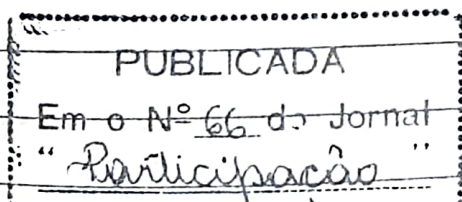 PUBLICADA
Em o Nº 66 do Jornal
" Participação "